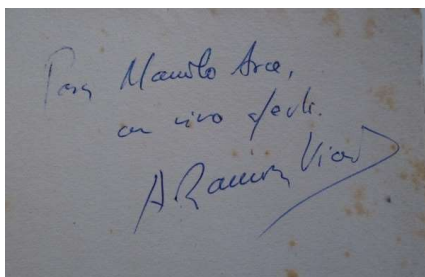 Para Manolo Arce,
con vivo afecto.
A. Ramírez Viad